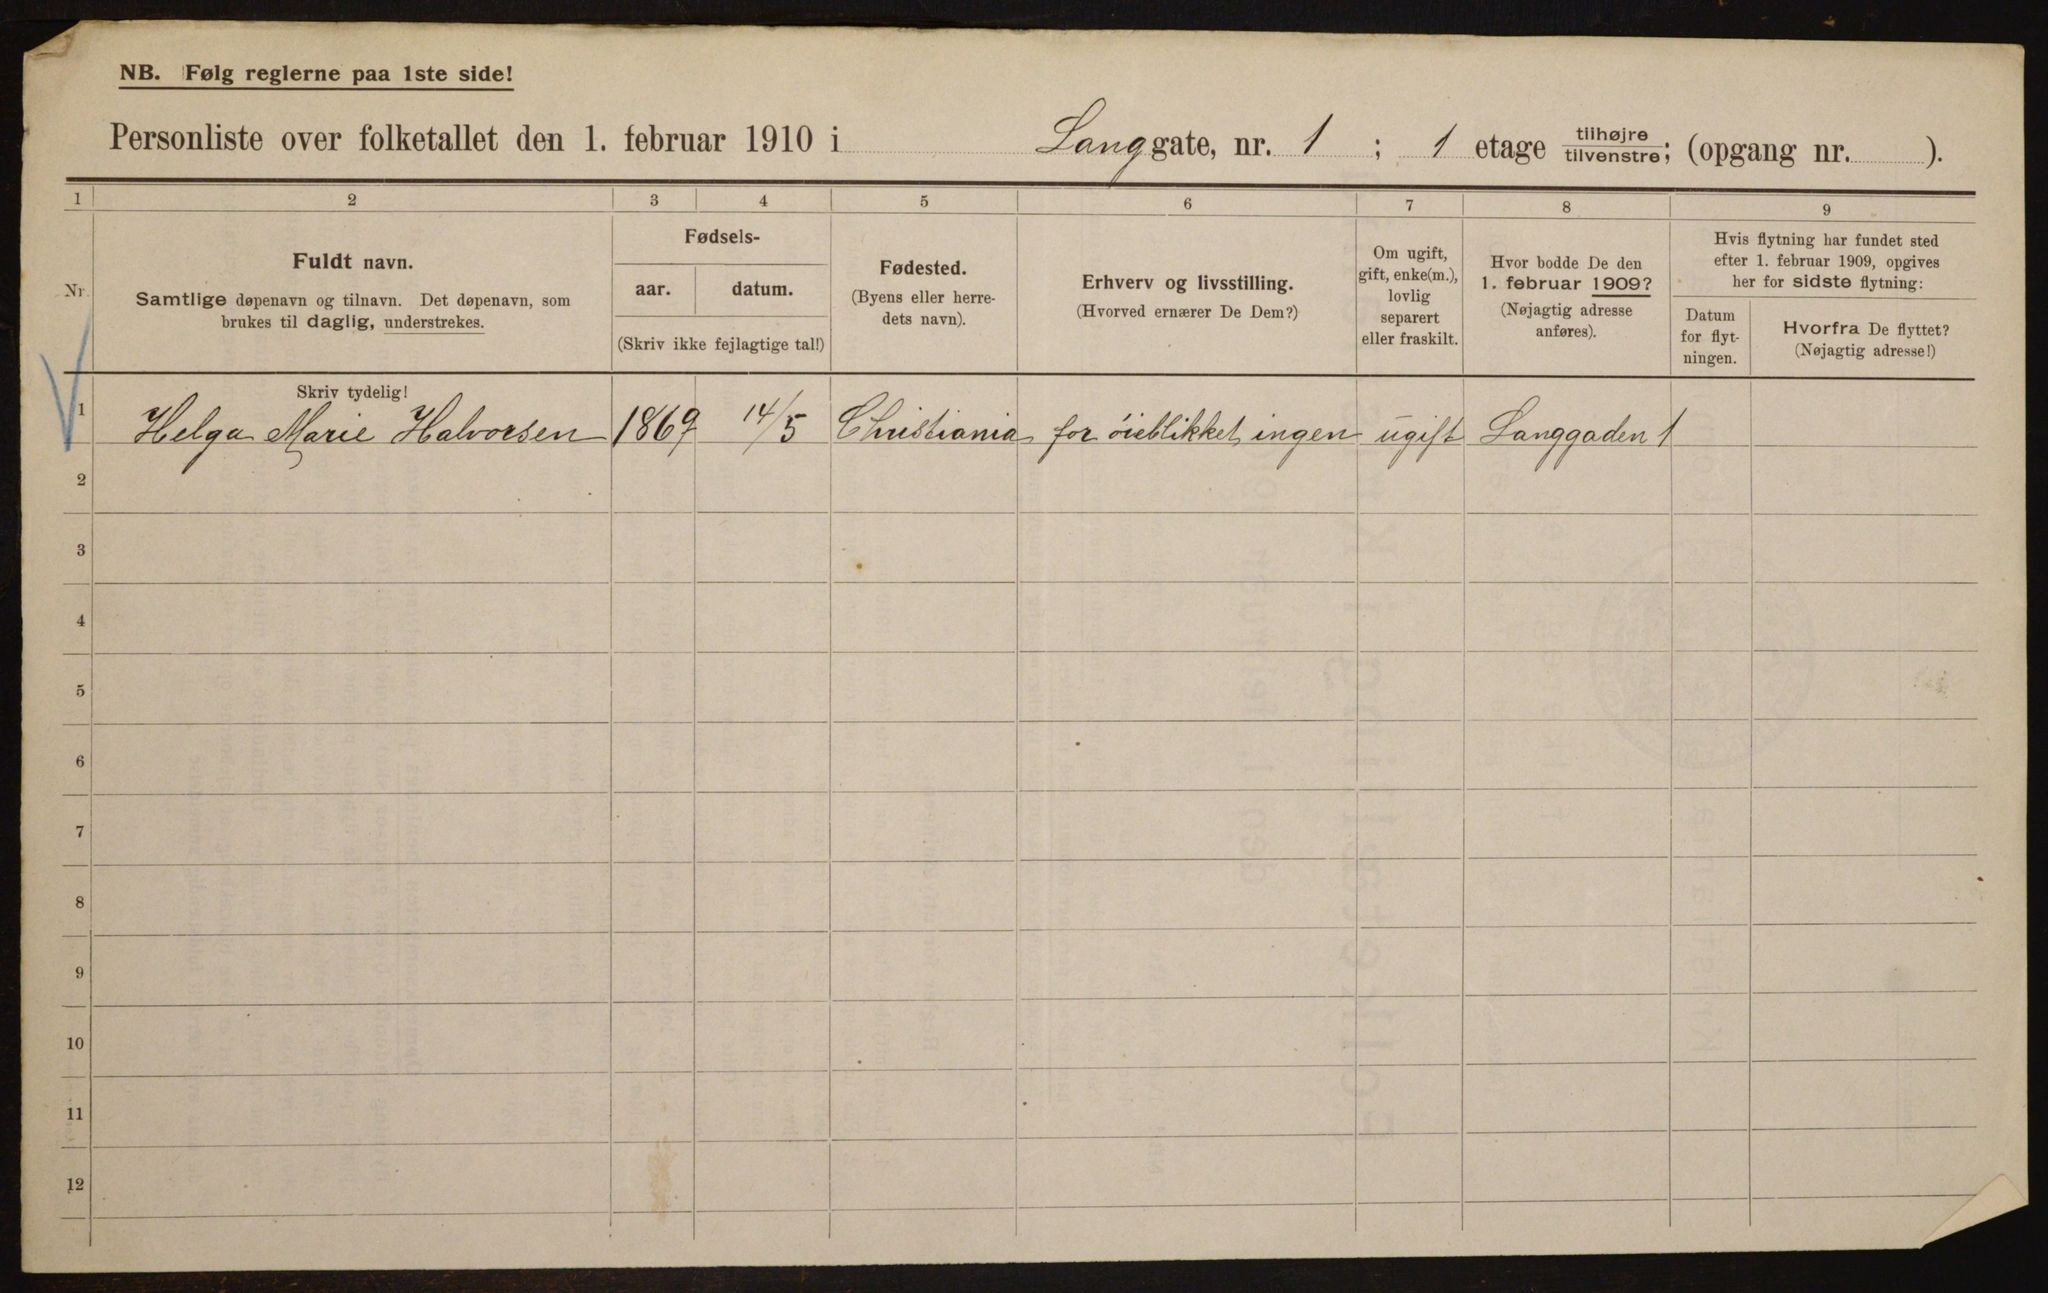 NB. Følg reglerne paa 1ste side!
Personliste over folketallet den 1. februar 1910 i Langgate, nr. 1 ; 1 etage tilhøjre/tilvenstre; (opgang nr. ).
1 2 3 4 5 6 7 8 9
Nr.
Fuldt navn.
Samtlige døpenavn og tilnavn. Det døpenavn, som
brukes til daglig, understrekes.
Skriv tydelig!
Fødsels-
aar. datum.
(Skriv ikke fejlagtige tal!)
Fødested.
(Byens eller herre-
dets navn).
Erhverv og livsstilling.
(Hvorved ernærer De Dem?)
Om ugift,
gift, enke(m.),
lovlig
separert
eller fraskilt.
Hvor bodde De den
1. februar 1909?
(Nøjagtig adresse
anføres).
Hvis flytning har fundet sted
efter 1. februar 1909, opgives
her for sidste flytning:
Datum
for flyt-
ningen.
Hvorfra De flyttet?
(Nøjagtig adresse!)
1 Helga Marie Halvorsen 1869 14/5 Christiania for øieblikket ingen ugift Langgaden 1
2
3
4
5
6
7
8
9
10
11
12